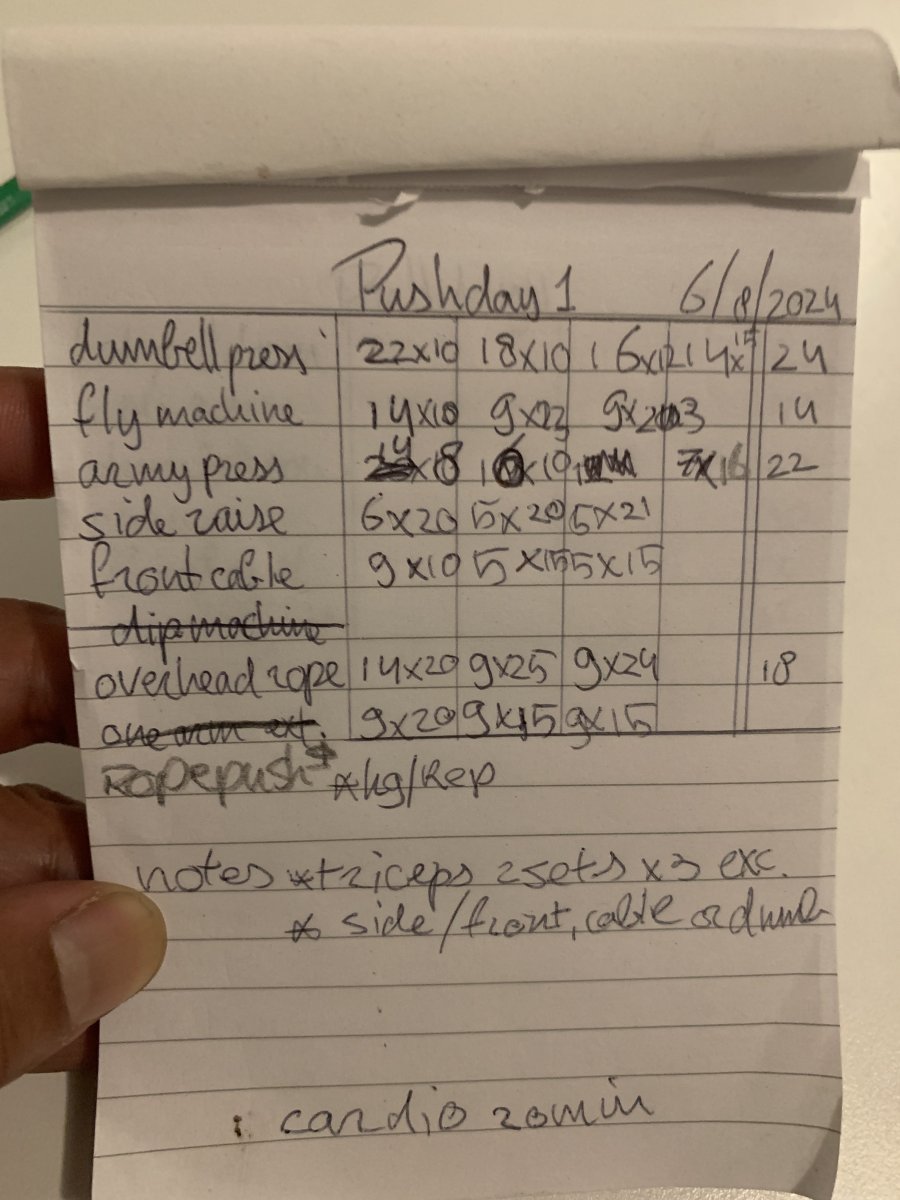 Pushday 1 6/8/2024
dumbell press 22x10 18x10 16x12 14x15 24
fly machine 14x10 9x23 14
army press 22
side raise 6x20 5x20 5x21
front cable 9x10 5x15 5x15
dip machine
overhead rope 14x20 9x25 9x24 18
one arm ext. 9x20 9x15 9x15
Ropepush
*kg/Rep
notes *triceps 2sets x3 exc.
* side/front, cable or dumb
: cardio 20min